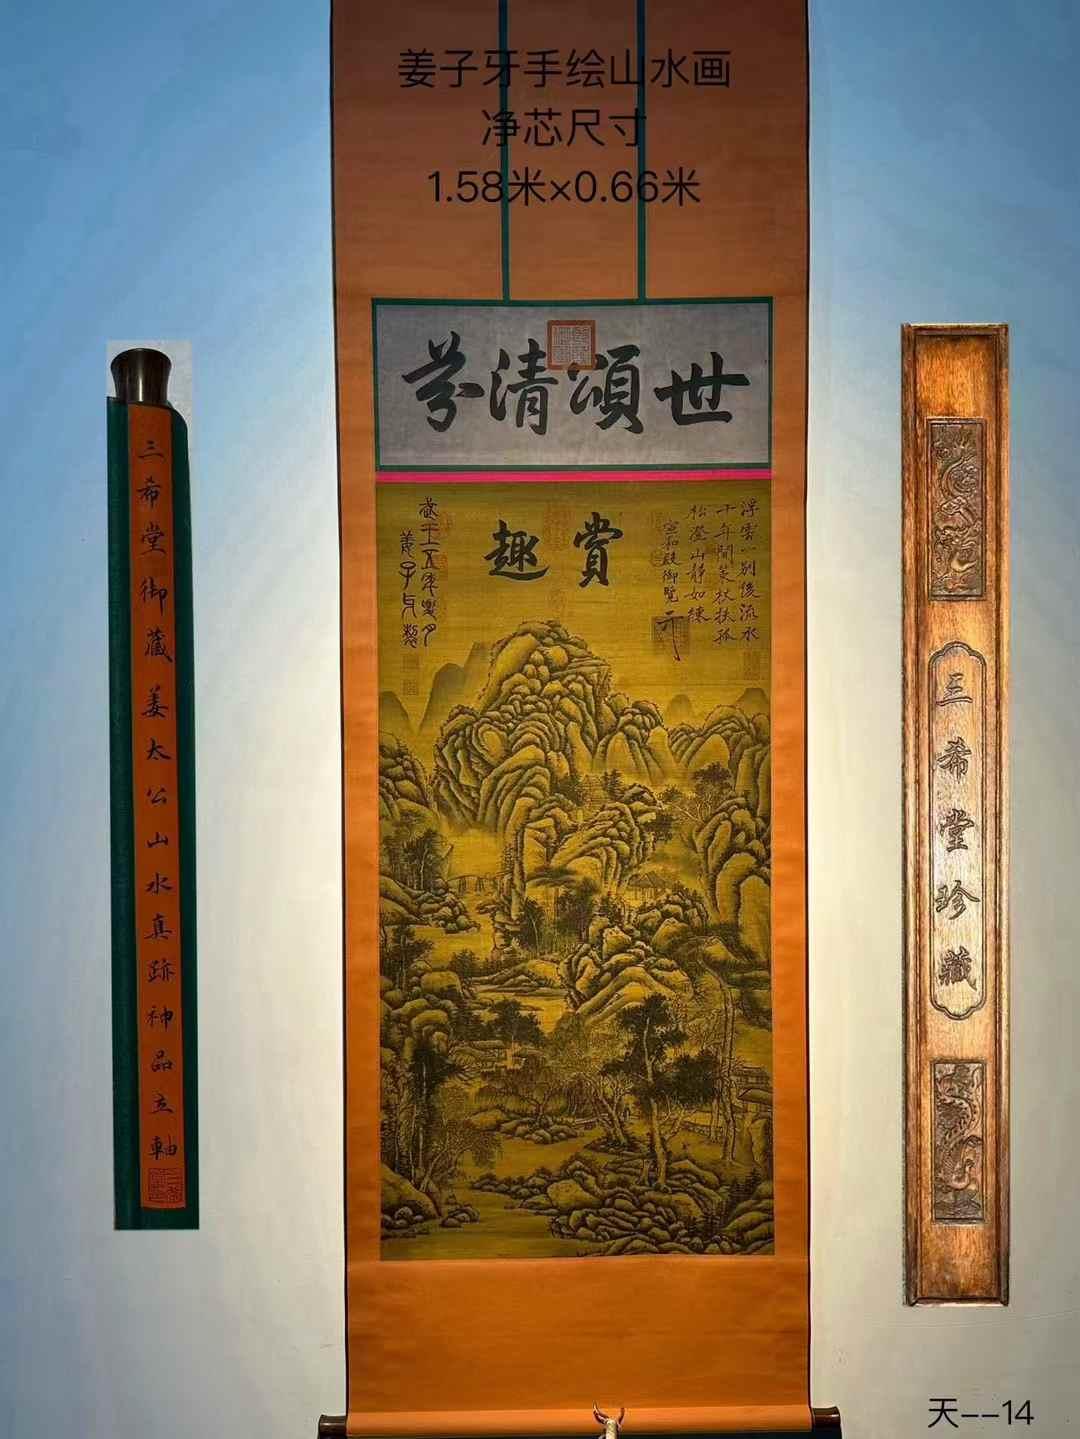 姜子牙手绘山水画
净芯尺寸
1.58米×0.66米
世頌清芬
賞趣
浮雲一別後流水
十年間策杖扶孤
松澄山靜如練
宣和殿御覽
姜子牙製
三希堂御藏姜太公山水真跡神品立軸
三希堂珍藏
天--14